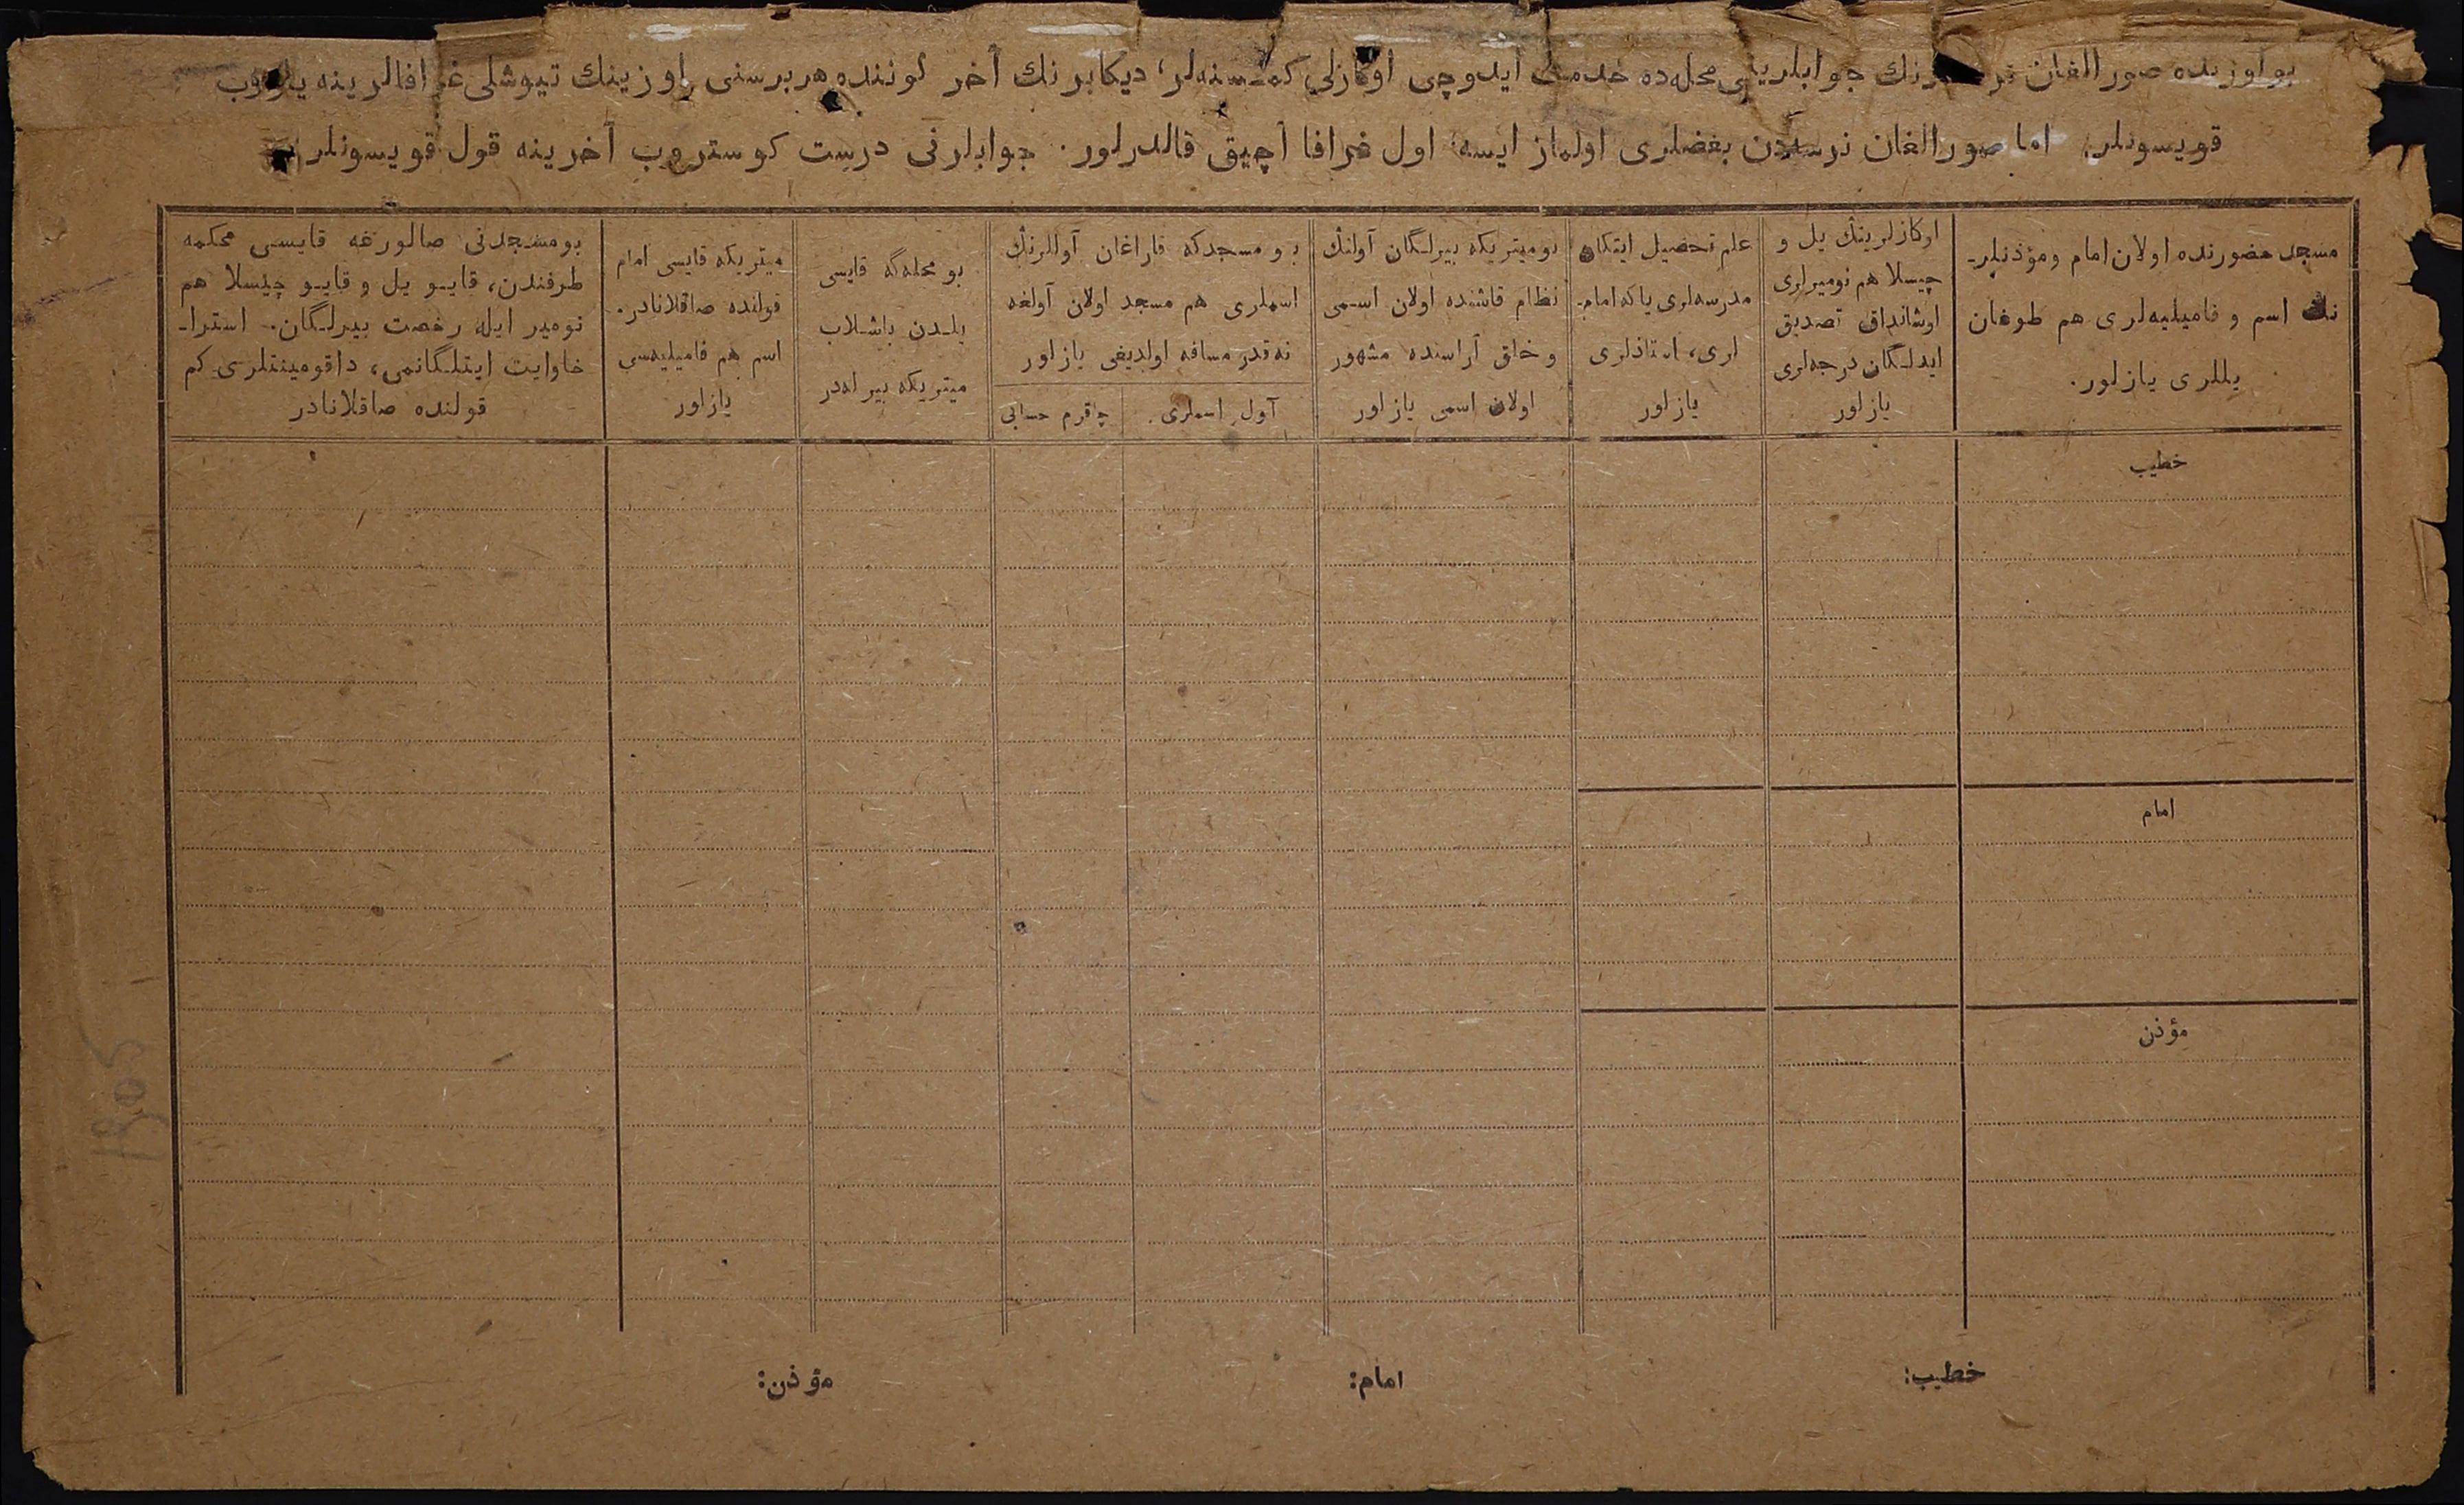 بو اوزينده صورالغان نرسه‌لرنك جوابلرينى محله‌ده خدمت ايدوچى اوكازلى كمسنه‌لر، ديكابرنك آخر كوننده هر برسنى اوزينك تيوشلى غرافالرينه يازوب
قويسونلر. اما صورالغان نرسه‌دن بعضلرى اولماز ايسه اول غرافا آچيق قالدرلور. جوابلرنى درست كوستروب آخرينه قول قويسونلر
مسجد حضورنده اولان امام ومؤذنلرـ
نك اسم و فاميليه‌لرى هم طوغان
يللرى يازلور.
اوكازلرينك يل و
چيسلا هم نوميرلرى
اوشانداق تصديق
ايدلـگان درجه‌لرى
يازلور
علم تحصيل ايتكان
مدرسه‌لرى ياكه امامـ
لرى، استاذلرى
يازلور
بو ميتريكه بيرلـگان آولنڭ
نظام قاشنده اولان اسمى
و خلق آراسنده مشهور
اولان اسمى يازلور
بو مسجدكه قاراغان آوللرنڭ
اسملرى هم مسجد اولان آولغه
نه‌قدر مسافه اولديغى يازلور
آول اسملرى.
چاقرم حسابى
بو محله‌گه قايسى
يلـدن باشـلاب
ميتريكه بيرله‌در
ميتريكه قايسى امام
قولنده صاقلانادر.
اسم هم فاميليه‌سى
يازلور
بو مسـجدنى صالورغه قايسى محكمه
طرفندن، قايـو يل و قايـو چيسلا هم
نومير ايله رخصت بيرلـگان. استراـ
خاوايت ايتلـگانمى، داقومينتلرى كم
قولنده صاقلانادر
خطيب
امام
مؤذن
خطيب:
امام:
مؤذن: